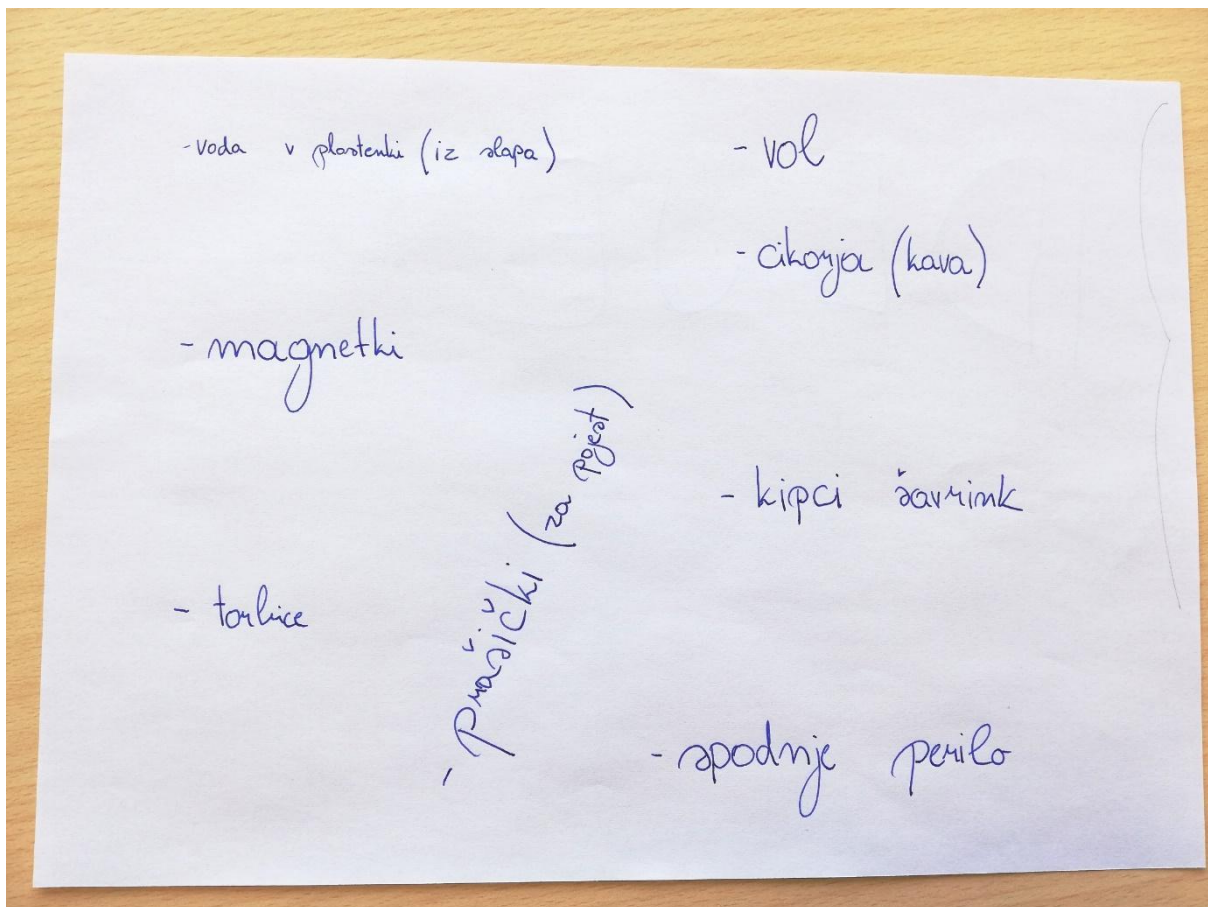 - voda v plastenki (iz slapa)
- magnetki
- torbice
- prašički (za pojest)
- vol
- cikorja (kava)
- kipci šavrink
- spodnje perilo